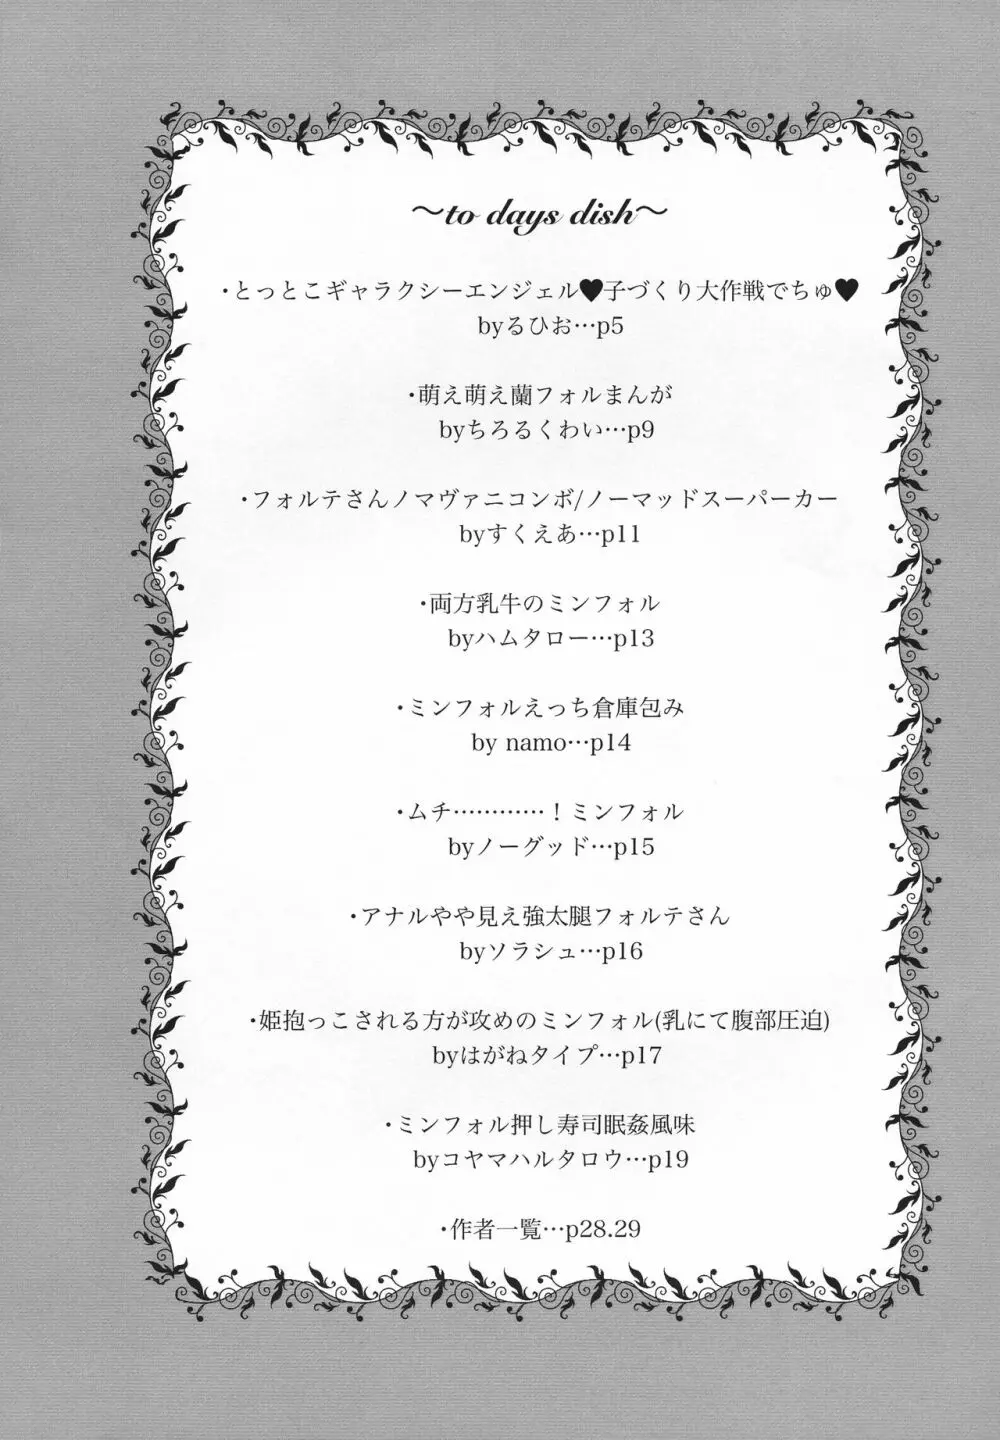 ～to days dish～
・とっとこギャラクシーエンジェル♥子づくり大作戦でちゅ♥
byるひお…p5
・萌え萌え蘭フォルまんが
byちろるくわい…p9
・フォルテさんノマヴァニコンボ/ノーマッドスーパーカー
byすくえあ…p11
・両方乳牛のミンフォル
byハムタロー…p13
・ミンフォルえっち倉庫包み
by namo…p14
・ムチ…………！ミンフォル
byノーグッド…p15
・アナルやや見え強太腿フォルテさん
byソラシュ…p16
・姫抱っこされる方が攻めのミンフォル(乳にて腹部圧迫)
byはがねタイプ…p17
・ミンフォル押し寿司眠姦風味
byコヤマハルタロウ…p19
・作者一覧…p28.29